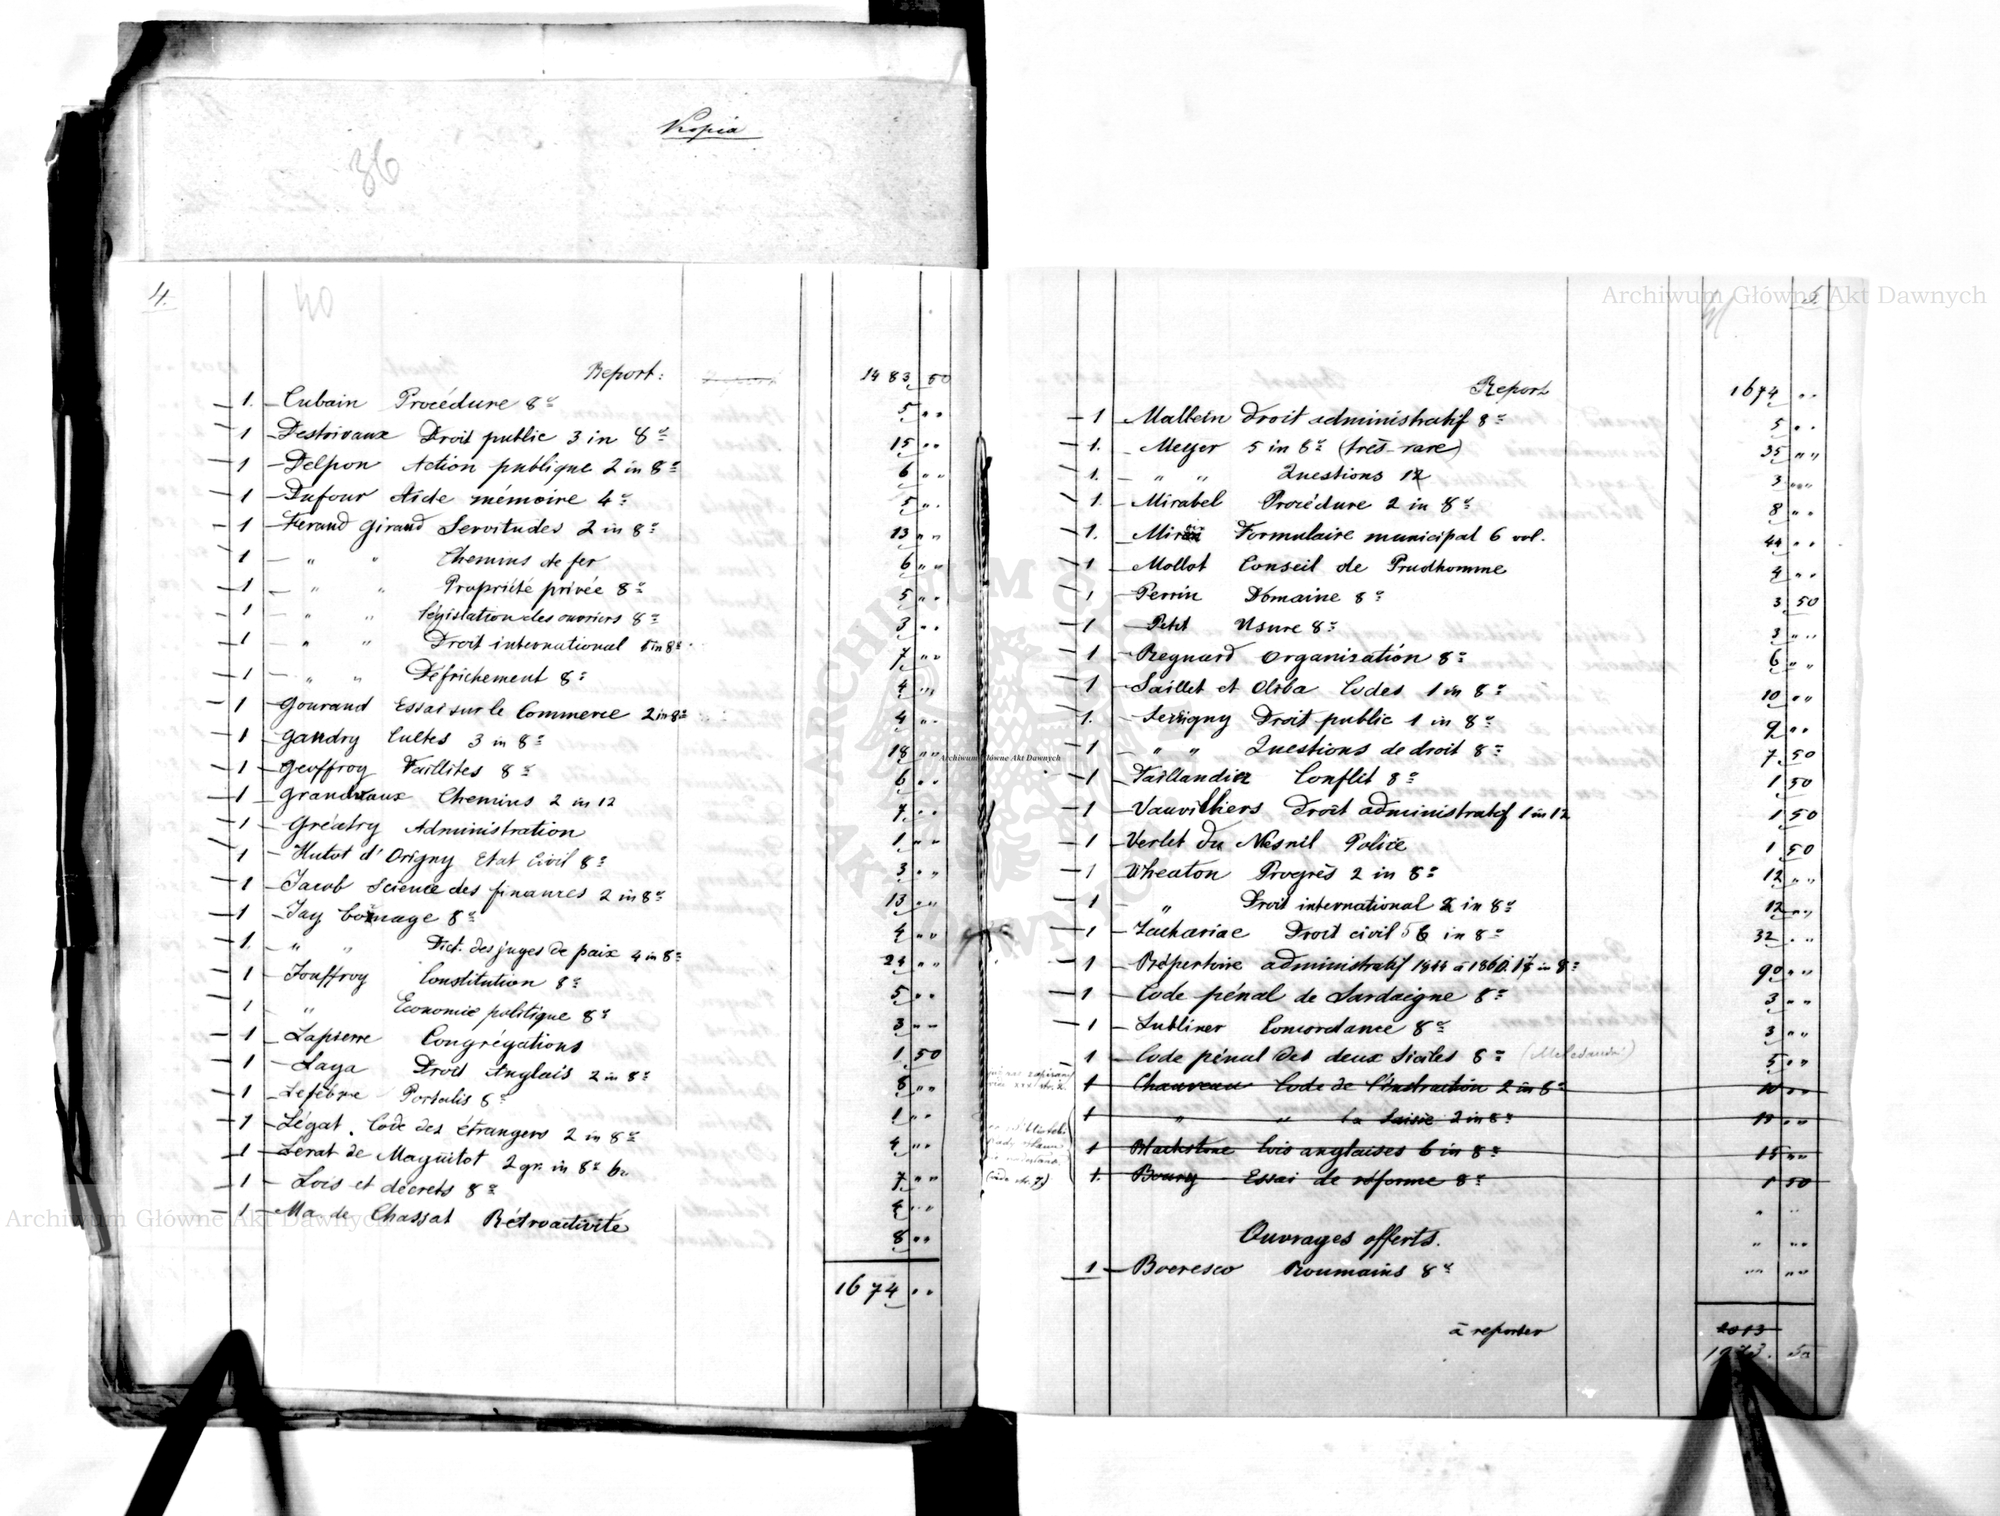 Kopia
36
4.
40
Report: 1483 50
1 Cubain Procédure 8º 5 " "
1 Destrivaux Droit public 3 in 8º 15 " "
1 Delpon Action publique 2 in 8º 6 " "
1 Dufour Aide mémoire 4º 5 " "
1 Feraud Giraud Servitudes 2 in 8º 13 " "
1 " " Chemins de fer 6 " "
1 " " Propriété privée 8º 5 " "
1 " " Législation des ouvriers 8º 3 " "
1 " " Droit international 8º 7 " "
1 " " Défrichement 8º 4 " "
1 Gouraud Essai sur le Commerce 2 in 8º 4 " "
1 Gaudry Cultes 3 in 8º 18 " "
1 Geoffroy Faillites 8º 6 " "
1 Grandvaux Chemins 2 in 12 7 " "
1 Gréatry Administration 1 " "
1 Hutot d'Origny Etat Civil 8º 3 " "
1 Jacob Science des finances 2 in 8º 13 " "
1 Jay bornage 8º 4 " "
1. " " Dict. des juges de paix 4 in 8º 24 " "
1 Jouffroy Constitution 8º 5 " "
1 " Economie politique 8º 3 " "
1 Lapierre Congrégations 1 50
1 Laya Droit Anglais 2 in 8º 8 " "
1 Lefebvre Portalis 8º 1 " "
1 Légat. Code des étrangers 2 in 8º 4 " "
1 Lerat de Magnitot 2 gr. in 8º 7 " "
1 Lois et décrets 8º 4 " "
1 Ma de Chassat Rétroactivité 8 " "
1674 " "
5.
41
Report 1674 " "
1 Malbein Droit administratif 8º 5 " "
1. Meyer 5 in 8º (très-rare) 35 " "
1. " " Questions 12 3 " "
1. Mirabel Procédure 2 in 8º 8 " "
1. Miroir Formulaire municipal 6 vol. 44 " "
1 Mollot Conseil de Prudhomme 4 " "
1 Perrin Domaine 8º 3 50
1 Petit Usure 8º 3 " "
1 Regnard Organisation 8º 6 " "
1 Saillet et Oliba Codes 1 in 8º 10 " "
1. Serrigny Droit public 1 in 8º 9 " "
1 " " Questions de droit 8º 7 50
1 Taillandier Conflit 8º 1 50
1 Vauvilliers Droit administratif 1 in 12 1 50
1 Verlet du Mesnil Police 1 50
1 Wheaton Progrès 2 in 8º 12 " "
1 " Droit international 2 in 8º 12 " "
1 Zachariae Droit civil 5 in 8º 32 " "
1 Répertoire administratif 1844 à 1860. 17 in 8º 90 " "
1 Code pénal de Sardaigne 8º 3 " "
1 Lubliner Concordance 8º 3 " "
1 Code pénal des deux Siciles 8º 5 " "
1 Chauveau Code de l'instruction 2 in 8º 10 " "
1 " " la saisie 2 in 8º 10 " "
1 Blackstone Lois anglaises 6 in 8º 15 " "
1. Boury Essai de réforme 8º 1 50
Ouvrages offerts.
1 Boeresco Roumains 8º " "
à reporter 2013
1973. 50
Archiwum Główne Akt Dawnych
Archiwum Główne Akt Dawnych
Archiwum Główne Akt Dawnych